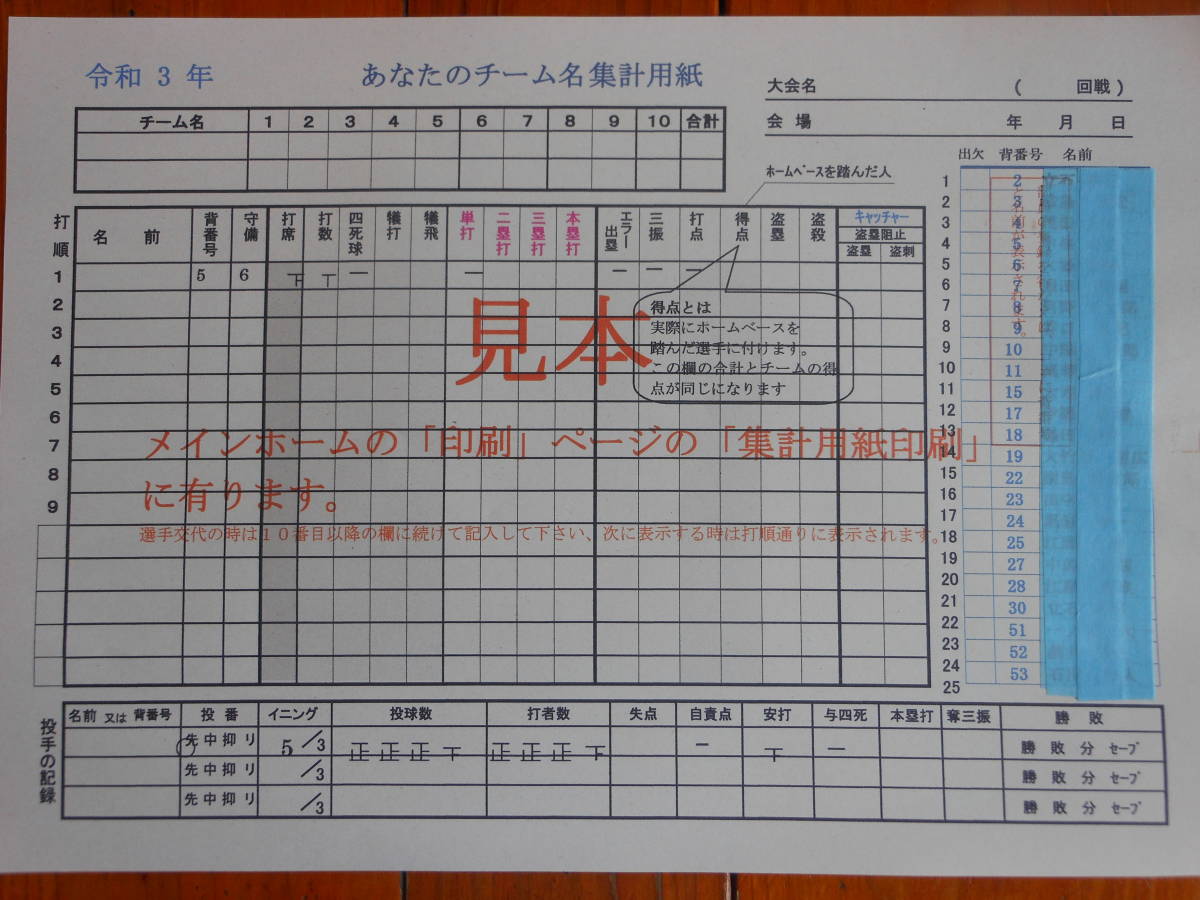 令和 3 年
あなたのチーム名集計用紙
大会名 ( 回戦 )
会 場 年 月 日
チーム名 1 2 3 4 5 6 7 8 9 10 合計
ホームベースを踏んだ人
出欠 背番号 名前
打順 名 前 背番号 守備 打席 打数 四死球 犠打 犠飛 単打 二塁打 三塁打 本塁打 エラー出塁 三振 打点 得点 盗塁 盗殺 キャッチャー
盗塁阻止
盗塁 盗刺
1 5 6 下 丅 一 一 一 一 一
2
3
4
5
6
7
8
9
得点とは
実際にホームベースを
踏んだ選手に付けます。
この欄の合計とチームの得
点が同じになります
見本
メインホームの「印刷」ページの「集計用紙印刷」
に有ります。
選手交代の時は１０番目以降の欄に続けて記入して下さい、次に表示する時は打順通りに表示されます。
1 2
2 3
3 4
4 5
5 6
6 7
7 8
8 9
9 10
10 11
11 15
12 17
13 18
14 19
15 22
16 23
17 24
18 25
19 27
20 28
21 30
22 51
23 52
24 53
25
投手の記録
名前 又は 背番号 投 番 イニング 投球数 打者数 失点 自責点 安打 与四死 本塁打 奪三振 勝 敗
先 中 抑 リ 5 /3 正 正 正 下 正 正 正 下 一 下 一 勝 敗 分 セーブ
先 中 抑 リ /3 勝 敗 分 セーブ
先 中 抑 リ /3 勝 敗 分 セーブ